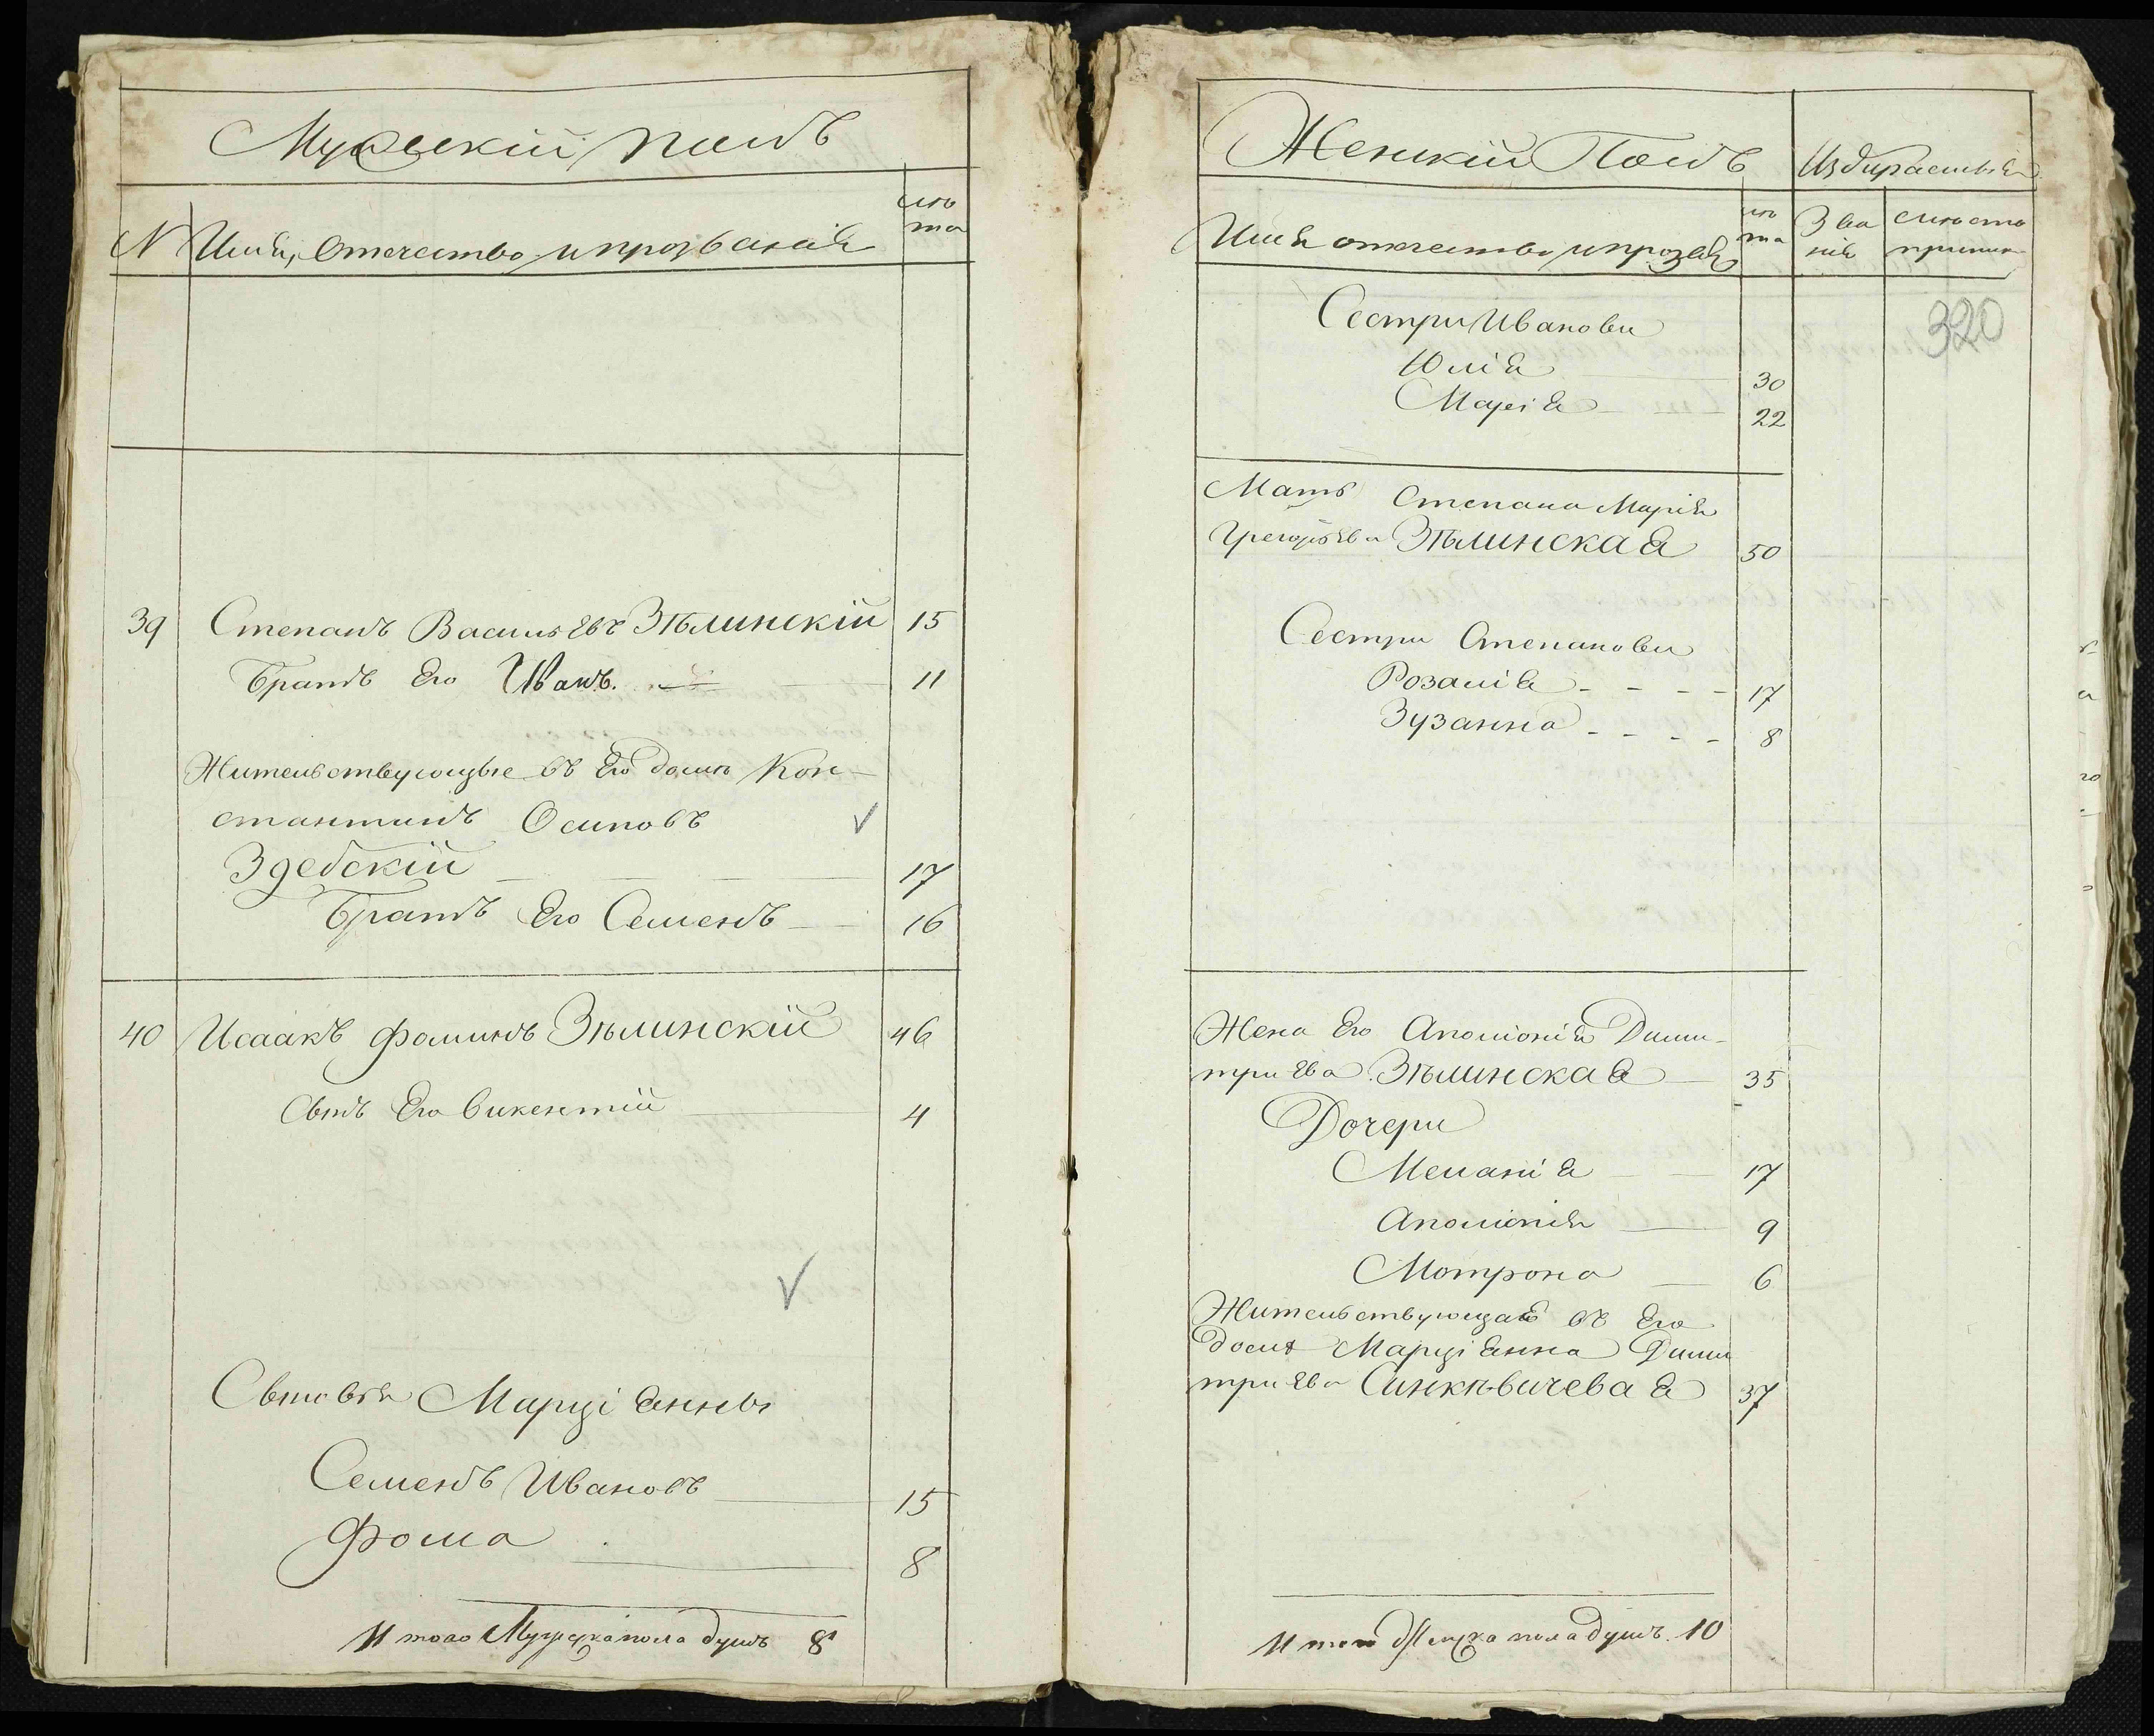 Мужескій полъ
лѣта
N Имя, отечество и прозваніе
39 Степанъ Васильевъ Зѣлинскій 15
Братъ Его Иванъ. 11
Жительствующые въ Его домѣ Кон-
стантинъ Осиповъ
Здебскій 17
Братъ Его Семенъ 16
40 Исаакъ Фоминъ Зѣлинскій 46
Сынъ Его Викентій 4
Сыновья Марціянны
Семенъ Ивановъ 15
Фома 8
Итого Мужеска пола душъ 8
Женскій Полъ
Имя отечество и прозв
лѣта
Зва
ніе
320
Сестри Иванови
Юлія 30
Марія 22
Мать Степана Марія
Грегорьева Зѣлинская 50
Сестри Степанови
Розалія 17
Зузанна 8
Жена Его Аполіонія Дими-
тріева Зѣлинская 35
Дочери
Меланія 17
Аполіонія 9
Мотрона 6
Жительствующая въ Его
домѣ Марціянна Дими
тріева Синкѣвичевая 37
Итого Женска пола душъ. 10